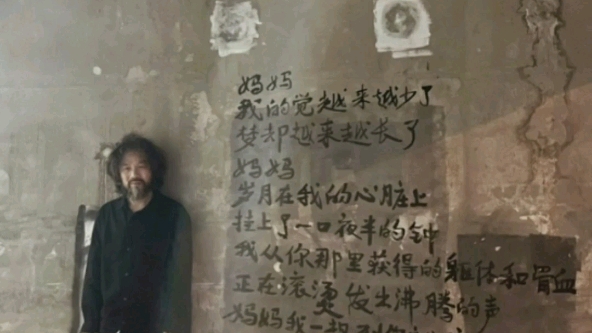 妈妈
我的觉越来越少了
梦却越来越长了
妈妈
岁月在我的心脏上
挂上了一口夜半的钟
我从你那里获得的躯体和骨血
正在滚烫发出沸腾的声
妈妈我一想到